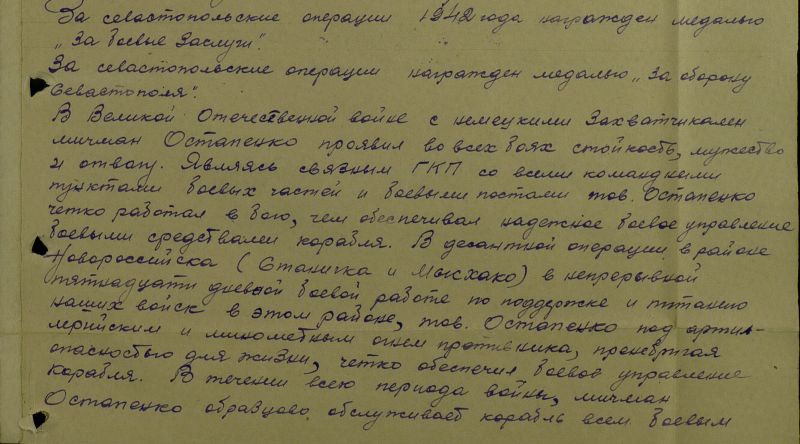 За севастопольские операции 1942 года награжден медалью
„За боевые Заслуги".
За севастопольские операции награжден медалью „За оборону
Севастополя".
В Великой Отечественной войне с немецкими захватчиками
мичман Остапенко проявил во всех боях стойкость, мужество
и отвагу. Являясь связным ГКП со всеми командными
пунктами боевых частей и боевыми постами тов. Остапенко
четко работал в бою, чем обеспечивал надежное боевое управление
боевыми средствами корабля. В десантной операции в районе
Новороссийска (Станичка и Мысхако) в непрерывной
пятнадцати дневной боевой работе по поддержке и питанию
наших войск в этом районе, тов. Остапенко под артил-
лерийским и минометным огнем противника, пренебрегая
опасностью для жизни, четко обеспечил боевое управление
корабля. В течении всего периода войны, мичман
Остапенко образцово обслуживает корабль всем боевым